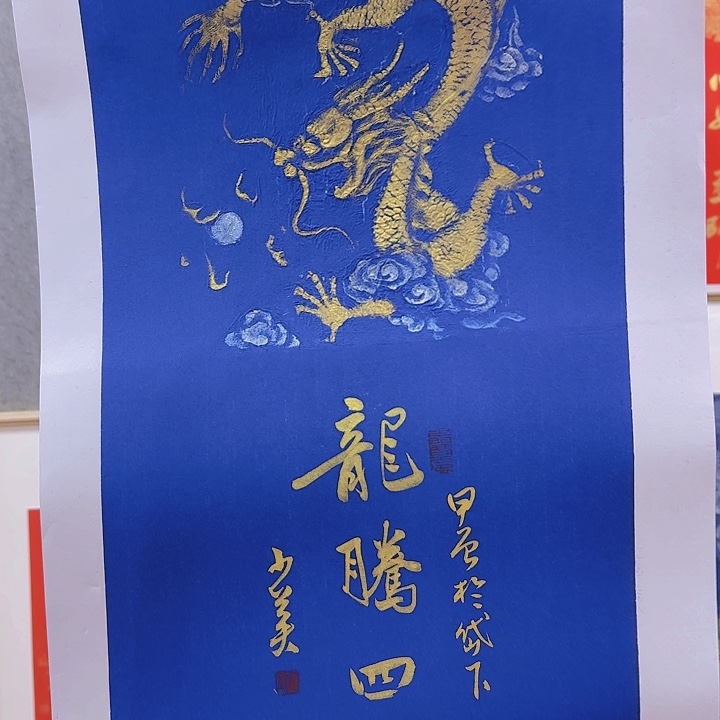 龍騰四
甲辰於岱下
少美